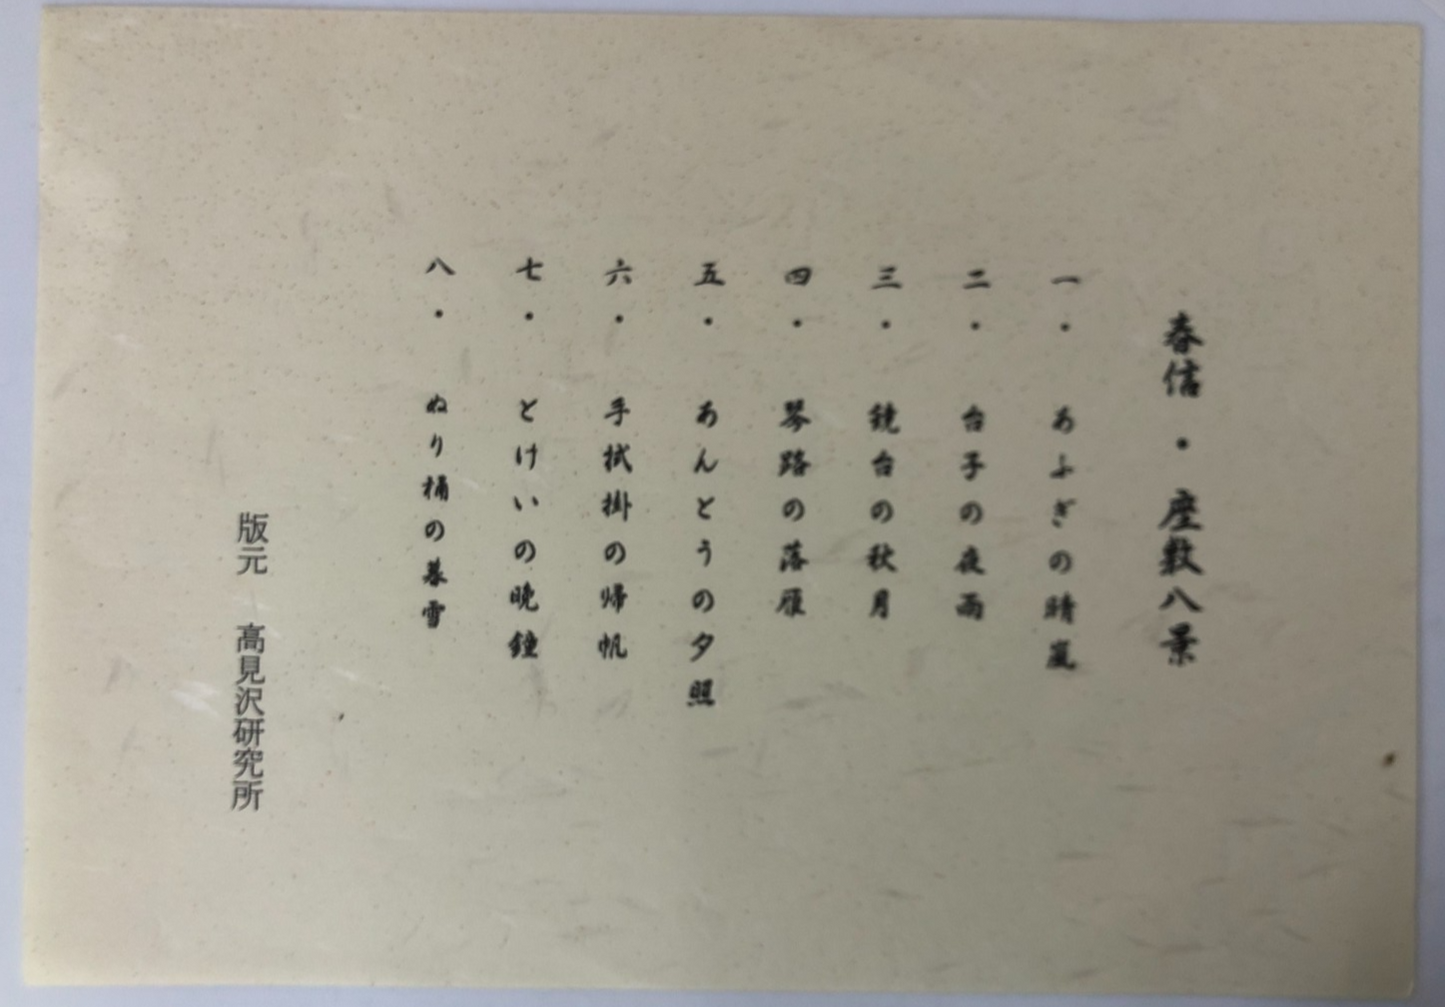 春信・座敷八景
一・あふぎの晴嵐
二・台子の夜雨
三・鏡台の秋月
四・琴路の落雁
五・あんどうの夕照
六・手拭掛の帰帆
七・とけいの晩鐘
八・ぬり桶の暮雪
版元 高見沢研究所